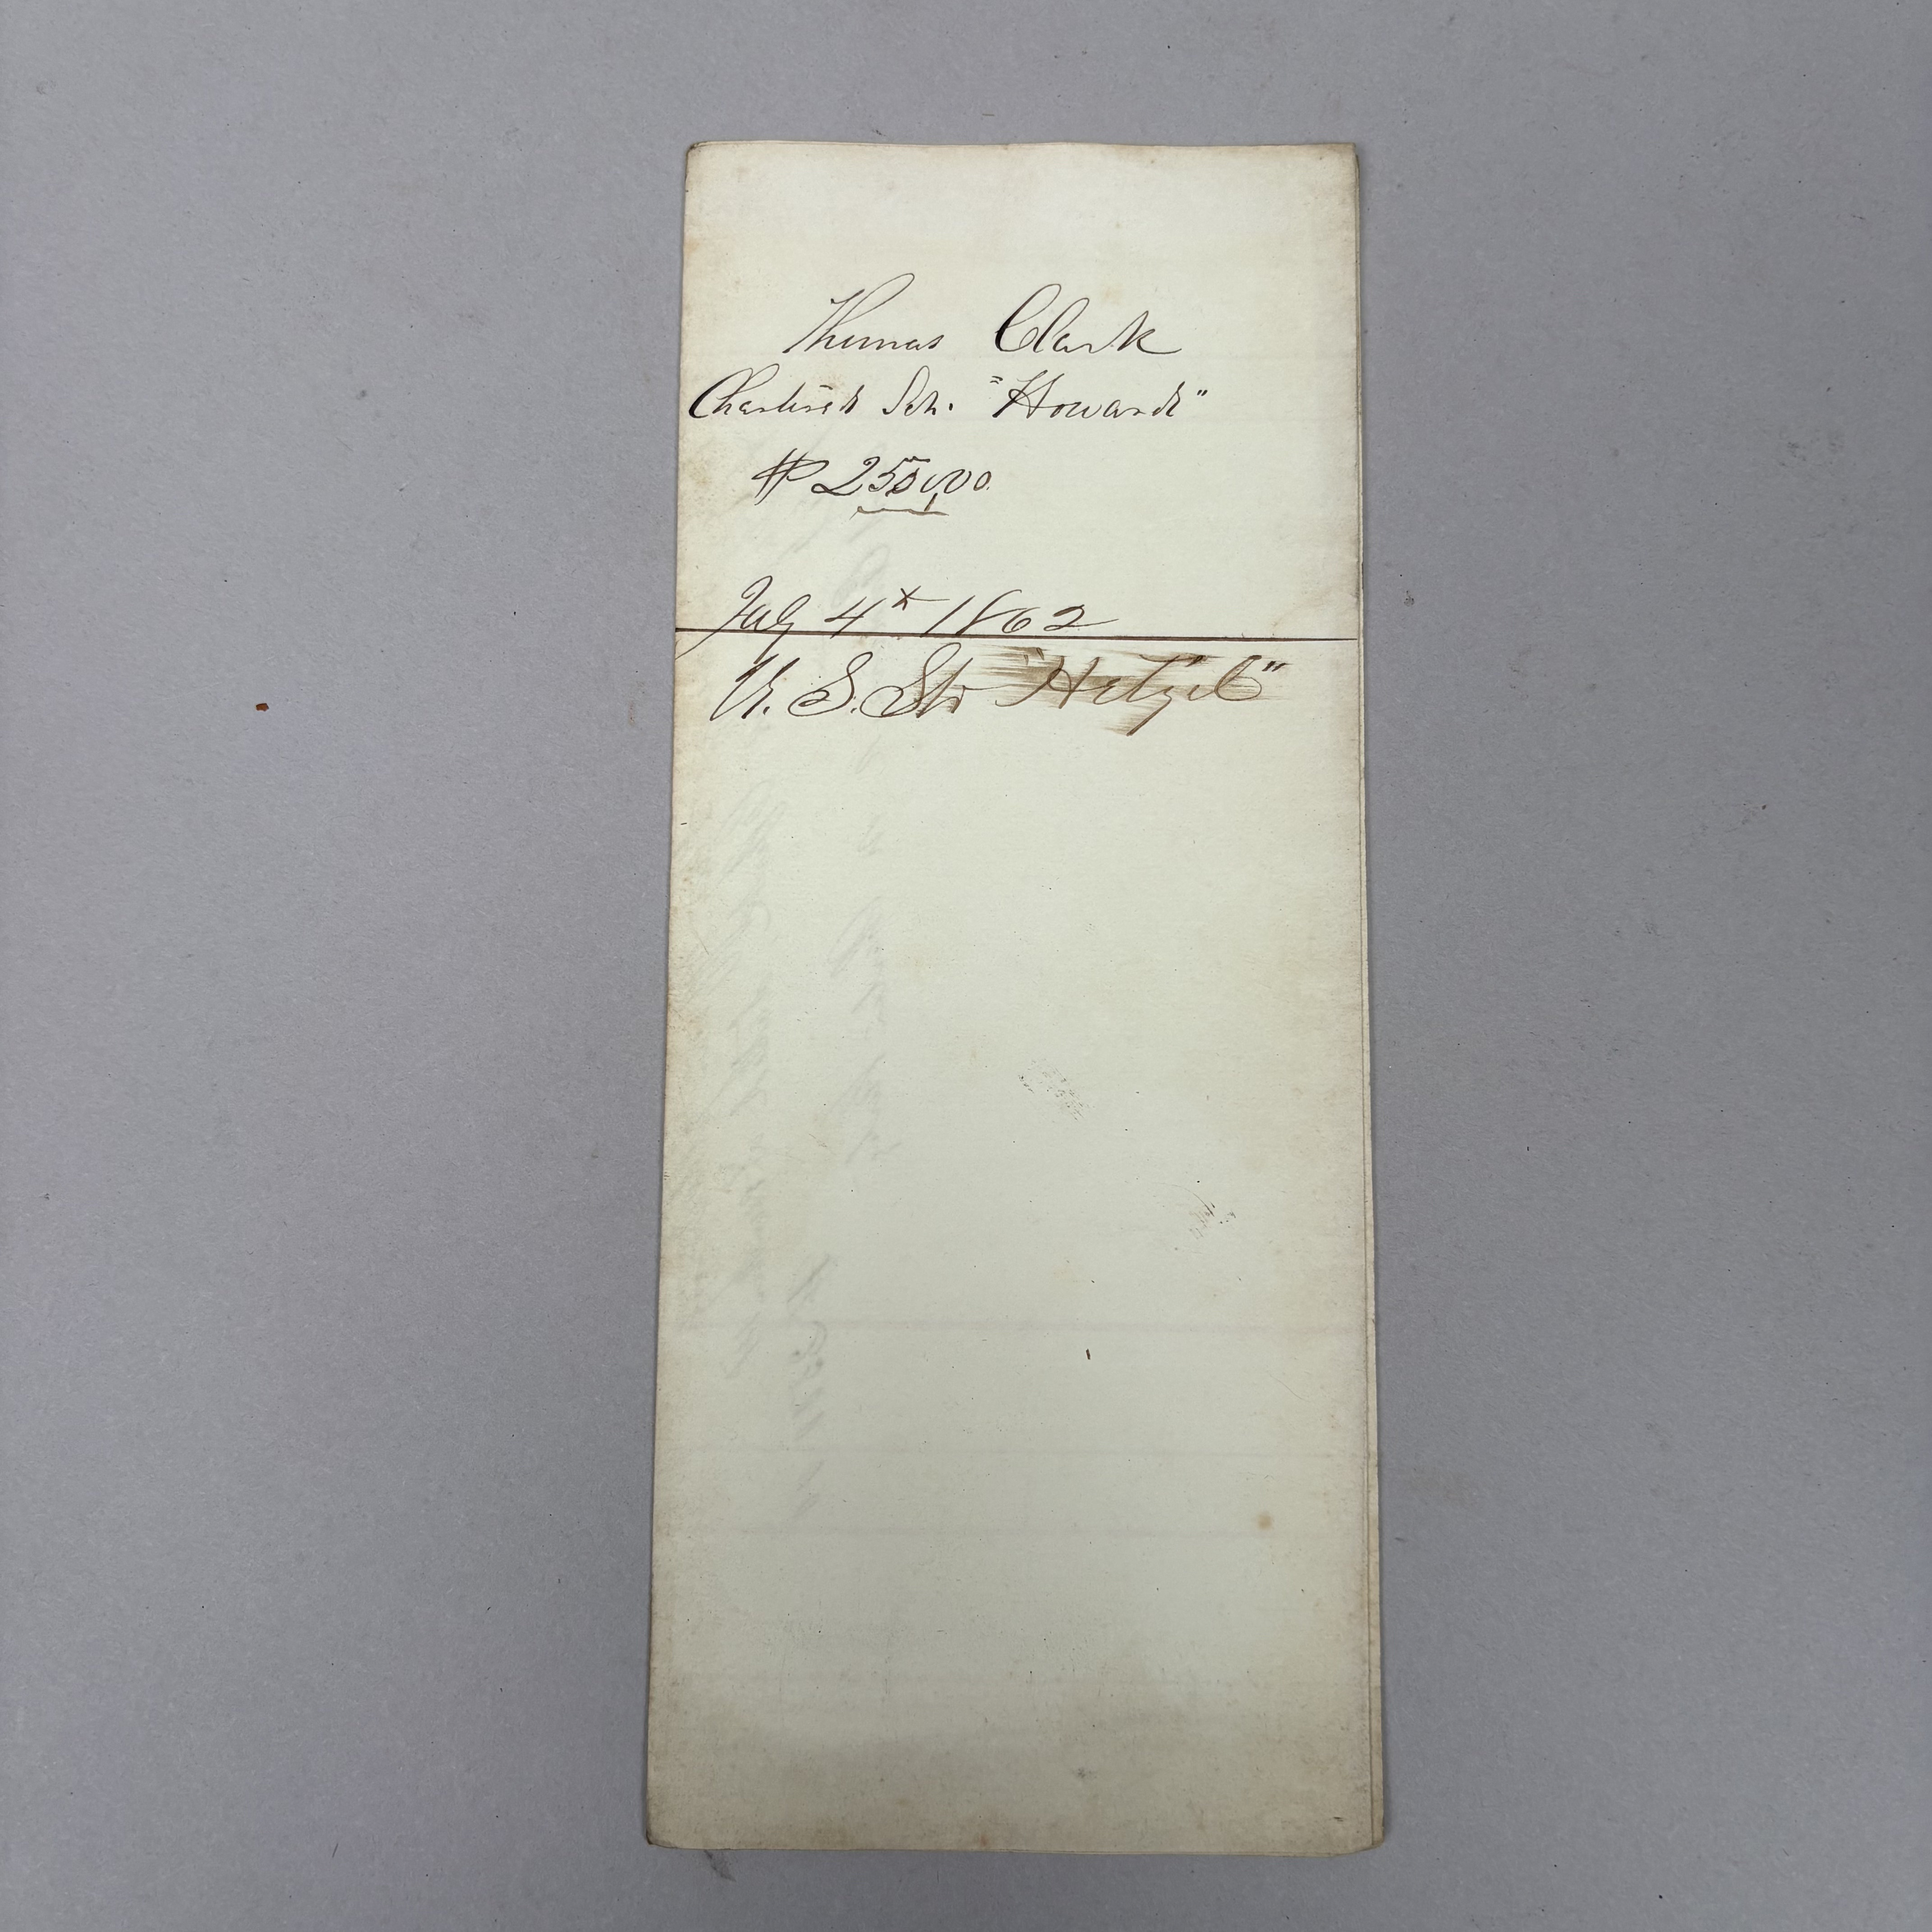 Thomas Clark
Chartered Sch. "Howard"
$250,00
July 4th 1862
U. S. Str "Hetzel"